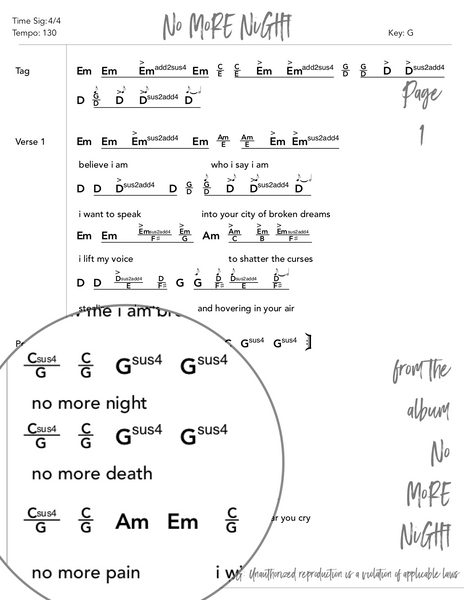 Time Sig:4/4
Tempo: 130
No MoRE NiGHT
Key: G
Tag Em Em Em add2sus4 Em C/E C/E Em Em add2sus4 G/D G/D D D sus2add4
D G/D D D sus2add4 D
Page
1
Verse 1 Em Em Em sus2add4 Em Am/E Am/E Em Em sus2add4
believe i am who i say i am
D D D sus2add4 D G/D G/D D D sus2add4 D
i want to speak into your city of broken dreams
Em Em Em sus2add4/F# Em/G Am Am/C Em/B Em sus2add4/F#
i lift my voice to shatter the curses
D D D sus2add4/E D/F# G G D/F# D sus2add4/E D/F#
and hovering in your air
G sus4 G sus4
C sus4/G C/G G sus4 G sus4
no more night
C sus4/G C/G G sus4 G sus4
no more death
C sus4/G C/G Am Em C/G
you cry
no more pain
from the
album
No
MoRE
NiGHT
Unauthorized reproduction is a violation of applicable laws